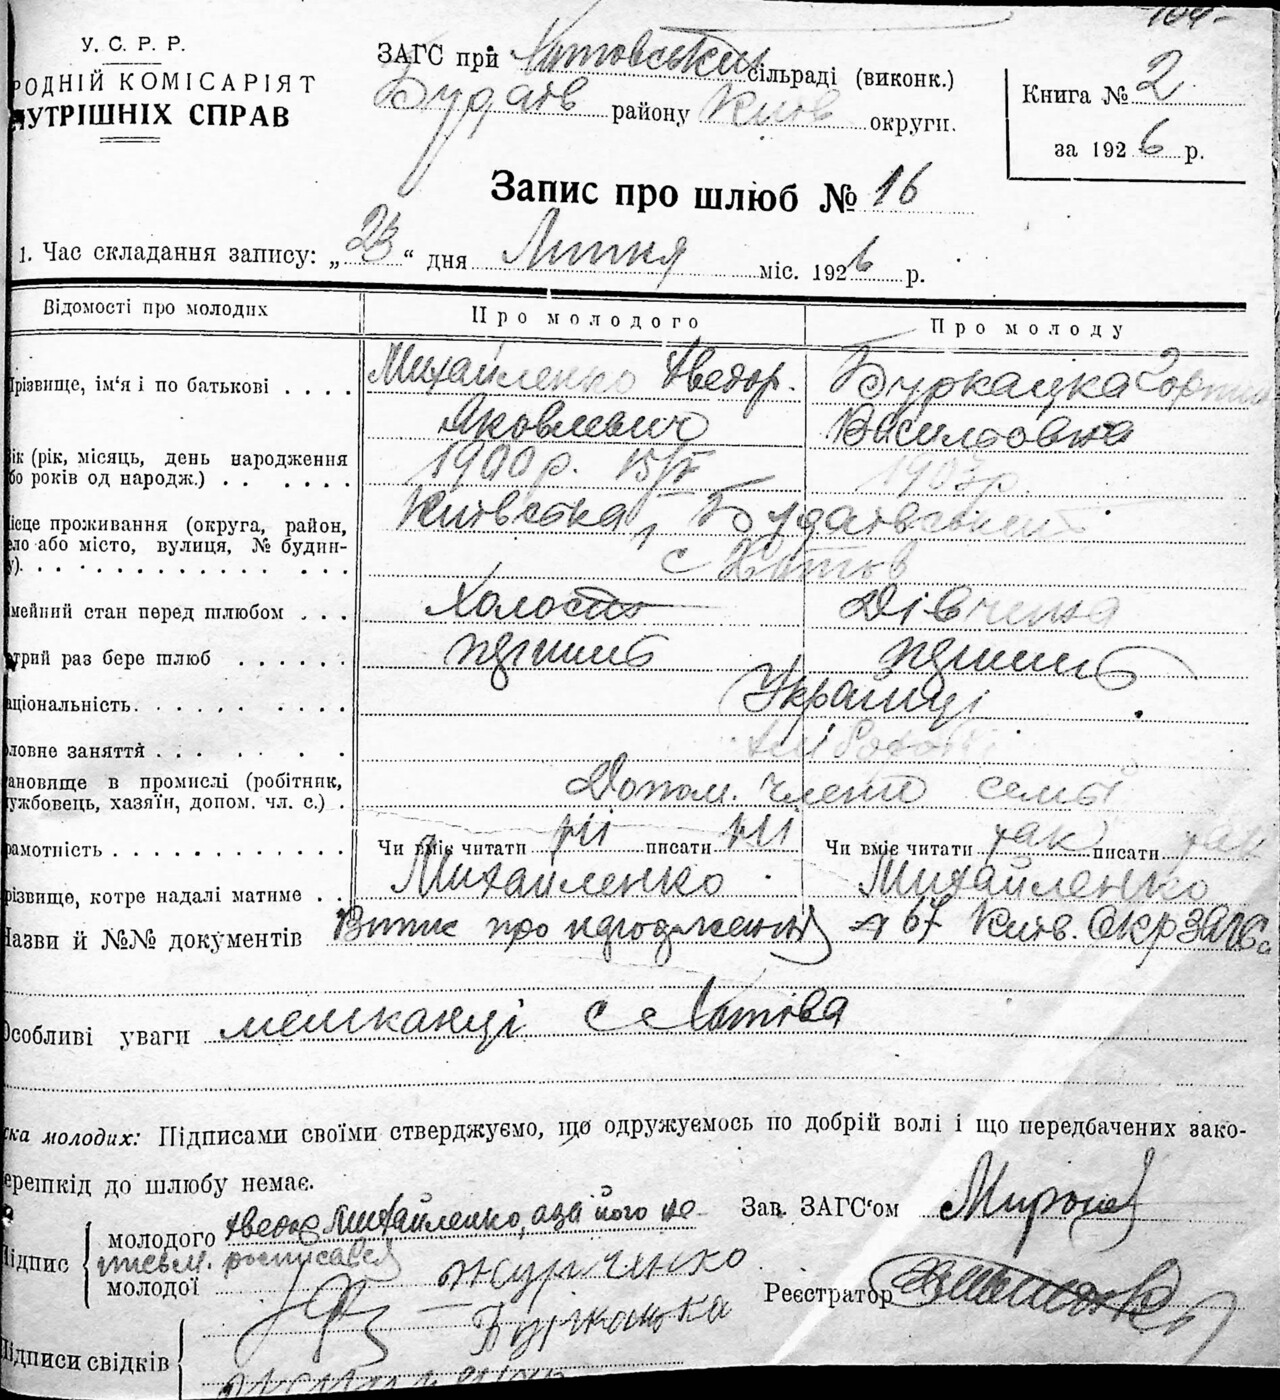 104-
У. С. Р. Р.
РОДНІЙ КОМІСАРІЯТ
НУТРІШНІХ СПРАВ
ЗАГС при Хотовський сільраді (виконк.)
Будаїв району Київ округи.
Книга № 2
за 1926 р.
Запис про шлюб № 16
1. Час складання запису: „23“ дня Липня міс. 1926 р.
Відомості про молодих Про молодого Про молоду
різвище, ім‘я і по батькові . . . . Михайленко Хведор. Буркацка
Яковлевич Василювна
ік (рік, місяць, день народження 1900 р. 15/ 1903 р.
бо років од народж.) . . . . . .
ісце проживання (округа, район, Київська, Будаївський
ело або місто, вулиця, № будин-
у). с Хотов
імейний стан перед шлюбом . . . Холостий Дівчина
трий раз бере шлюб . . . . . . перший перший
аціональність. Українці
ловне заняття . . . . . . . хліборобн
ановище в промислі (робітник,
ужбовець, хазяїн, допом. чл. с.) . Допом. член семьї
рамотність . . . . Чи вміє читати ні писати ні Чи вміє читати так писати так
різвище, котре надалі матиме . . Михайленко Михайленко
Назви й №№ документів Витяг про народження № 67 Київ. Окрзагса
Особливі уваги мешканці с Хотова
ска молодих: Підписами своїми стверджуємо, що одружуємось по добрій волі і що передбачених зако-
ерешкід до шлюбу немає.
Підпис молодого Хведор Михайленко, а за його не
письм. росписався
молодої Юрченко
Зав. ЗАГС‘ом
Реєстратор
Буркацька
Підписи свідків